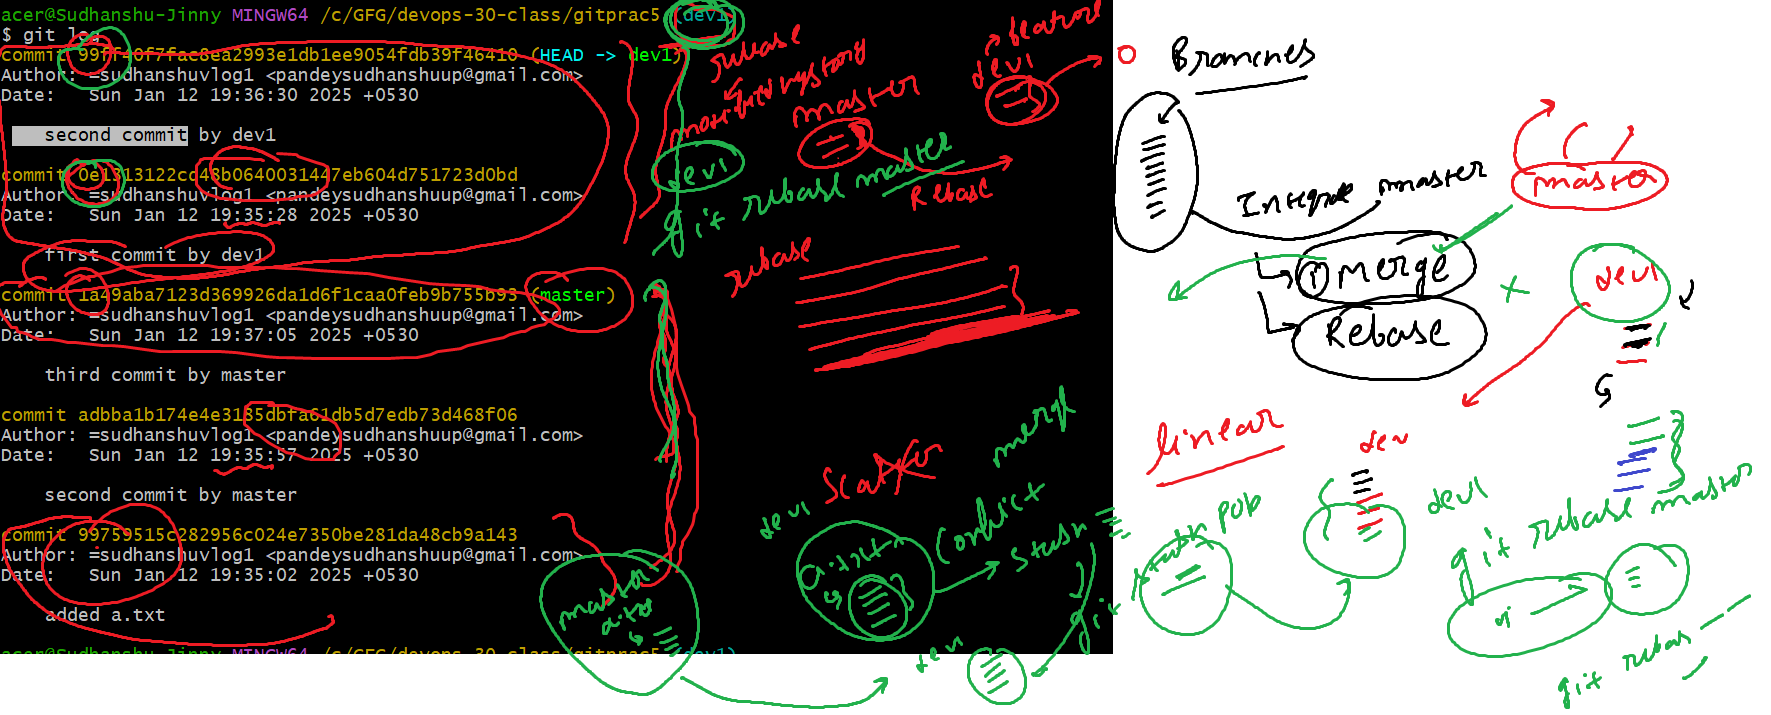 acer@Sudhanshu-Jinny MINGW64 /c/GFG/devops-30-class/gitprac5 (dev1)
$ git log
commit 99ff40f7fac8ea2993e1db1ee9054fdb39f46410 (HEAD -> dev1)
Author: =sudhanshuvlog1 <pandeysudhanshuup@gmail.com>
Date:   Sun Jan 12 19:36:30 2025 +0530
second commit by dev1
commit 0e1313122cd48b0640031447eb604d751723d0bd
Author: =sudhanshuvlog1 <pandeysudhanshuup@gmail.com>
Date:   Sun Jan 12 19:35:28 2025 +0530
first commit by dev1
commit 1a49aba7123d369926da1d6f1caa0feb9b755b93 (master)
Author: =sudhanshuvlog1 <pandeysudhanshuup@gmail.com>
Date:   Sun Jan 12 19:37:05 2025 +0530
third commit by master
commit adbba1b174e4e3185dbfa61db5d7edb73d468f06
Author: =sudhanshuvlog1 <pandeysudhanshuup@gmail.com>
Date:   Sun Jan 12 19:35:57 2025 +0530
second commit by master
commit 99759515c282956c024e7350be281da48cb9a143
Author: =sudhanshuvlog1 <pandeysudhanshuup@gmail.com>
Date:   Sun Jan 12 19:35:02 2025 +0530
added a.txt
acer@Sudhanshu-Jinny MINGW64 /c/GFG/devops-30-class/gitprac5 (dev1)
rebase
master
dev1
dev1
git rebase master
Rebase
rebase
merge
dev1
Stash
master
a.txt
dev
Branches
master
Integrate master
① Merge
+
dev1
Rebase
linear
dev
dev1
git rebase master
git stash pop
git rebase